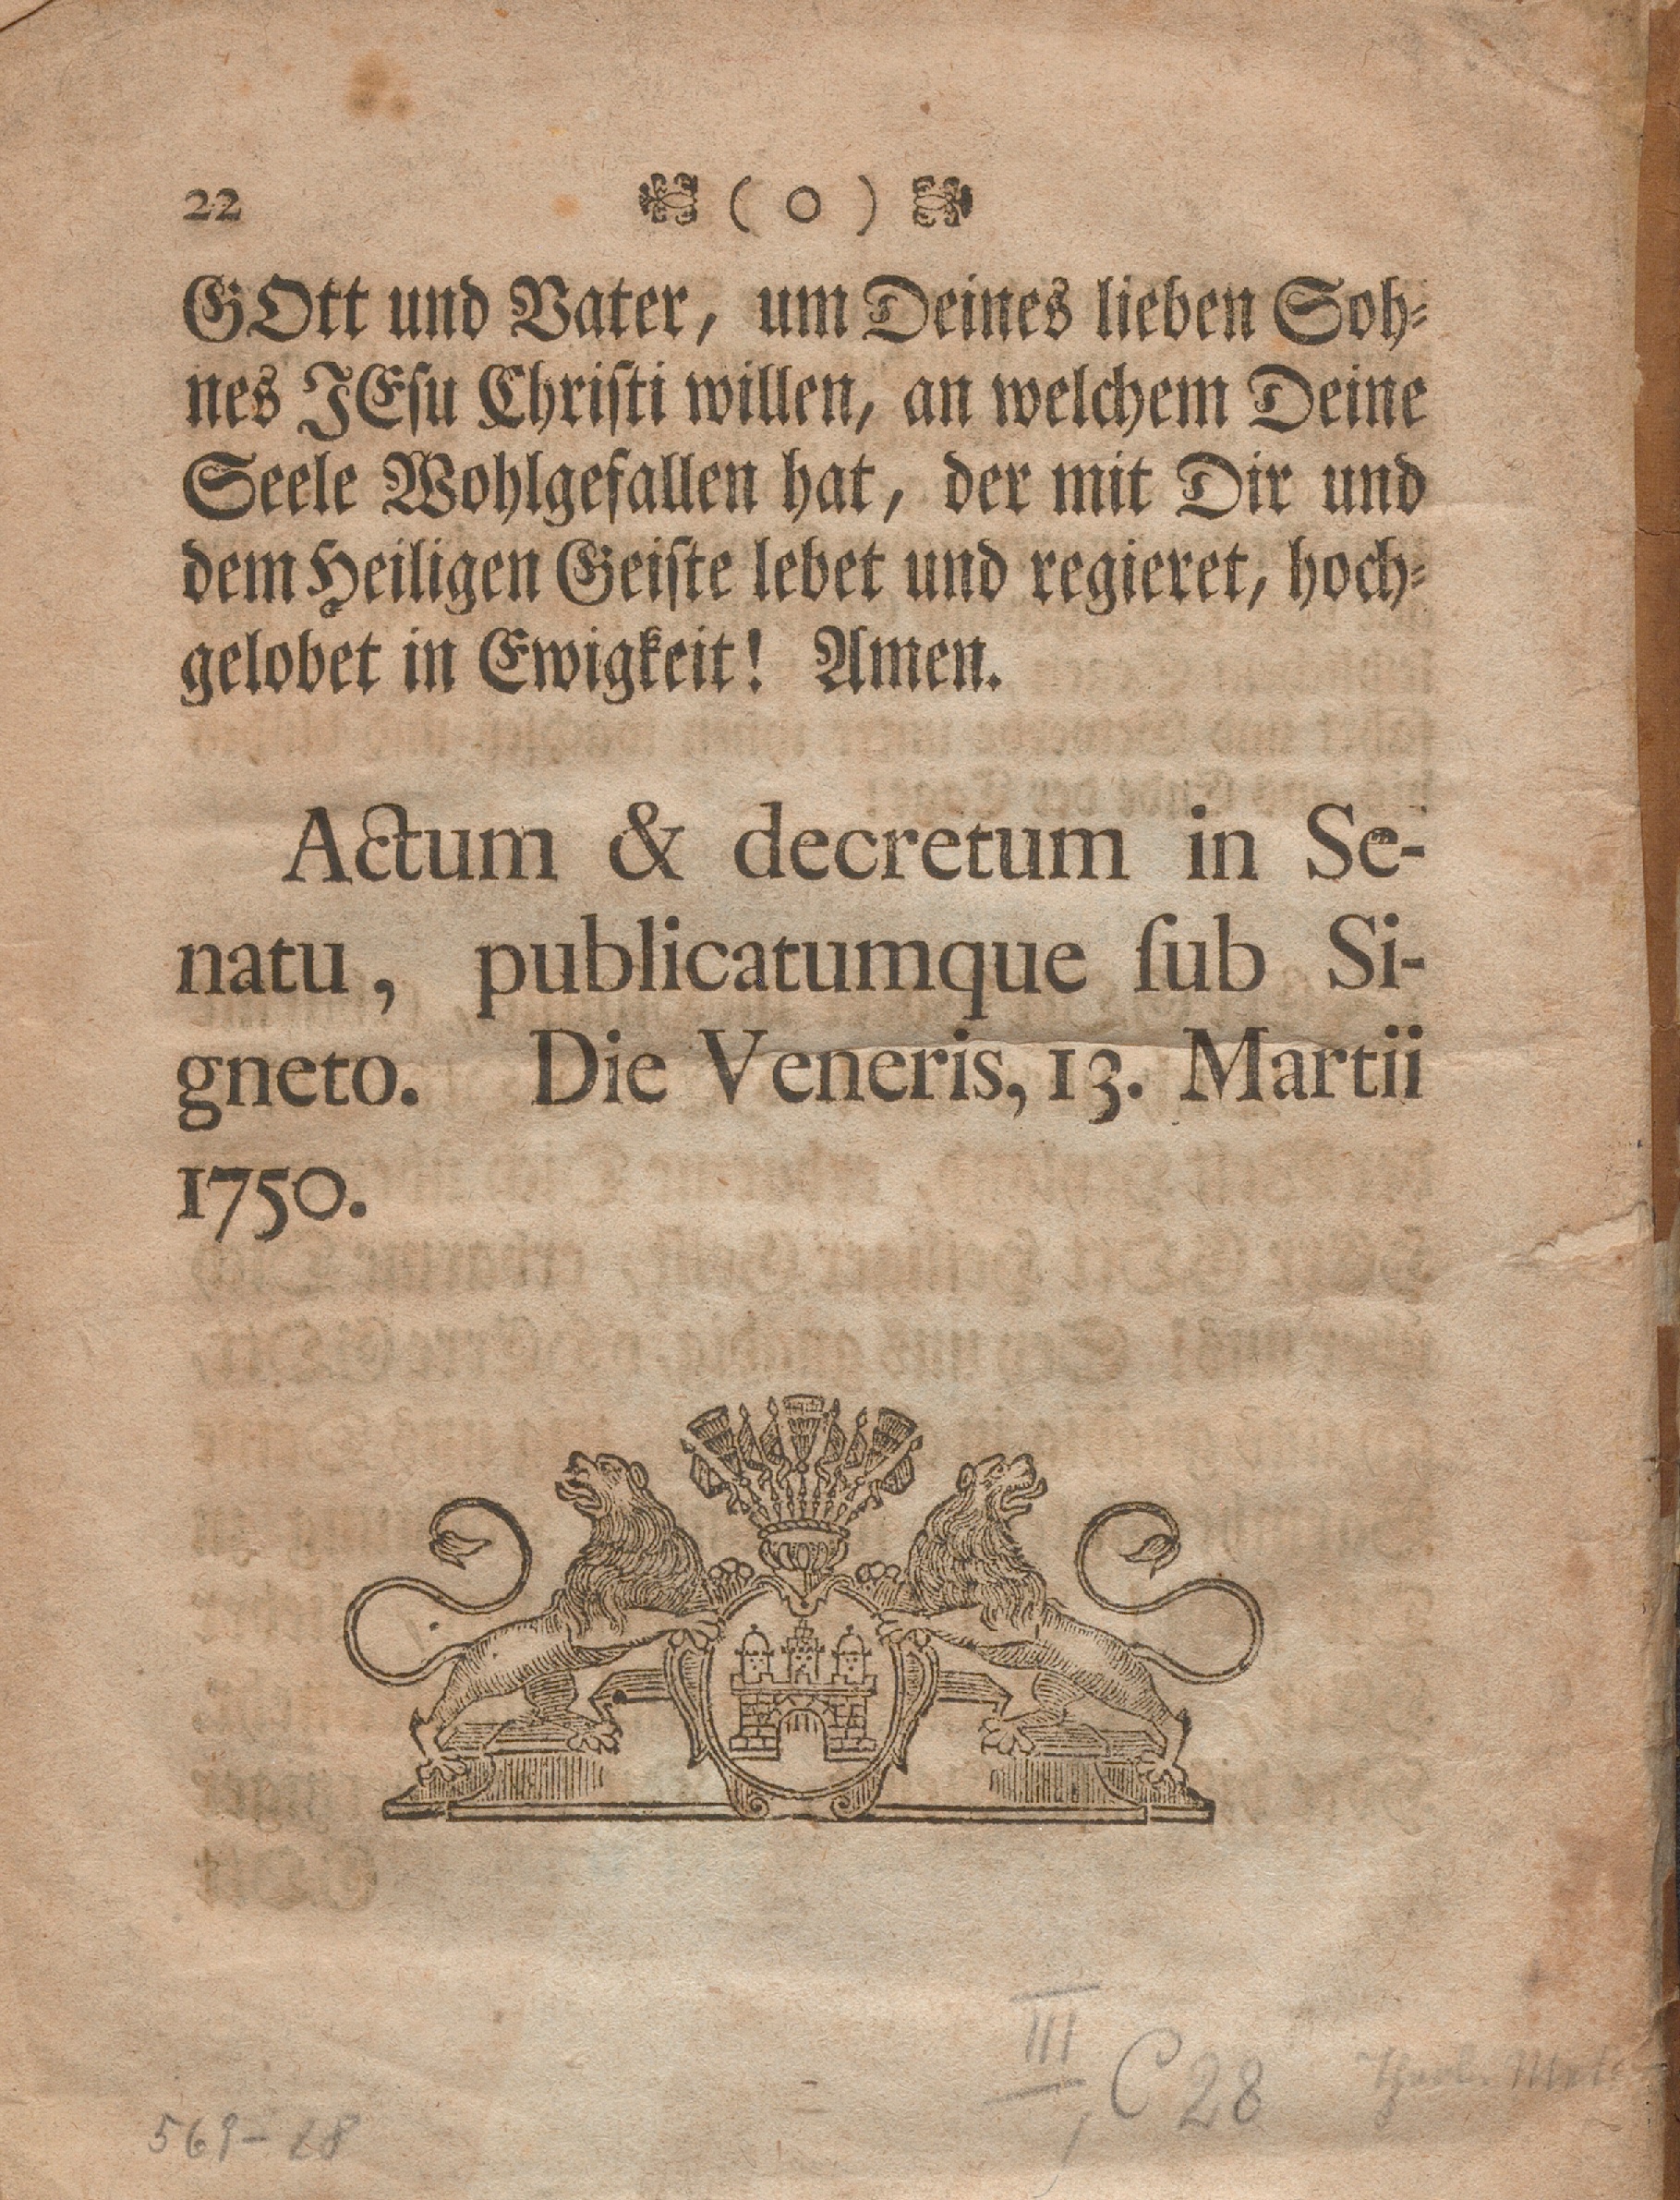 22 ( o )
GOtt und Vater, um Deines lieben Soh-
nes JEſu Chriſti willen, an welchem Deine
Seele Wohlgefallen hat, der mit Dir und
dem Heiligen Geiſte lebet und regieret, hoch-
gelobet in Ewigkeit! Amen.
Actum & decretum in Se-
natu, publicatumque ſub Si-
gneto. Die Veneris, 13. Martii
1750.
III, C 28